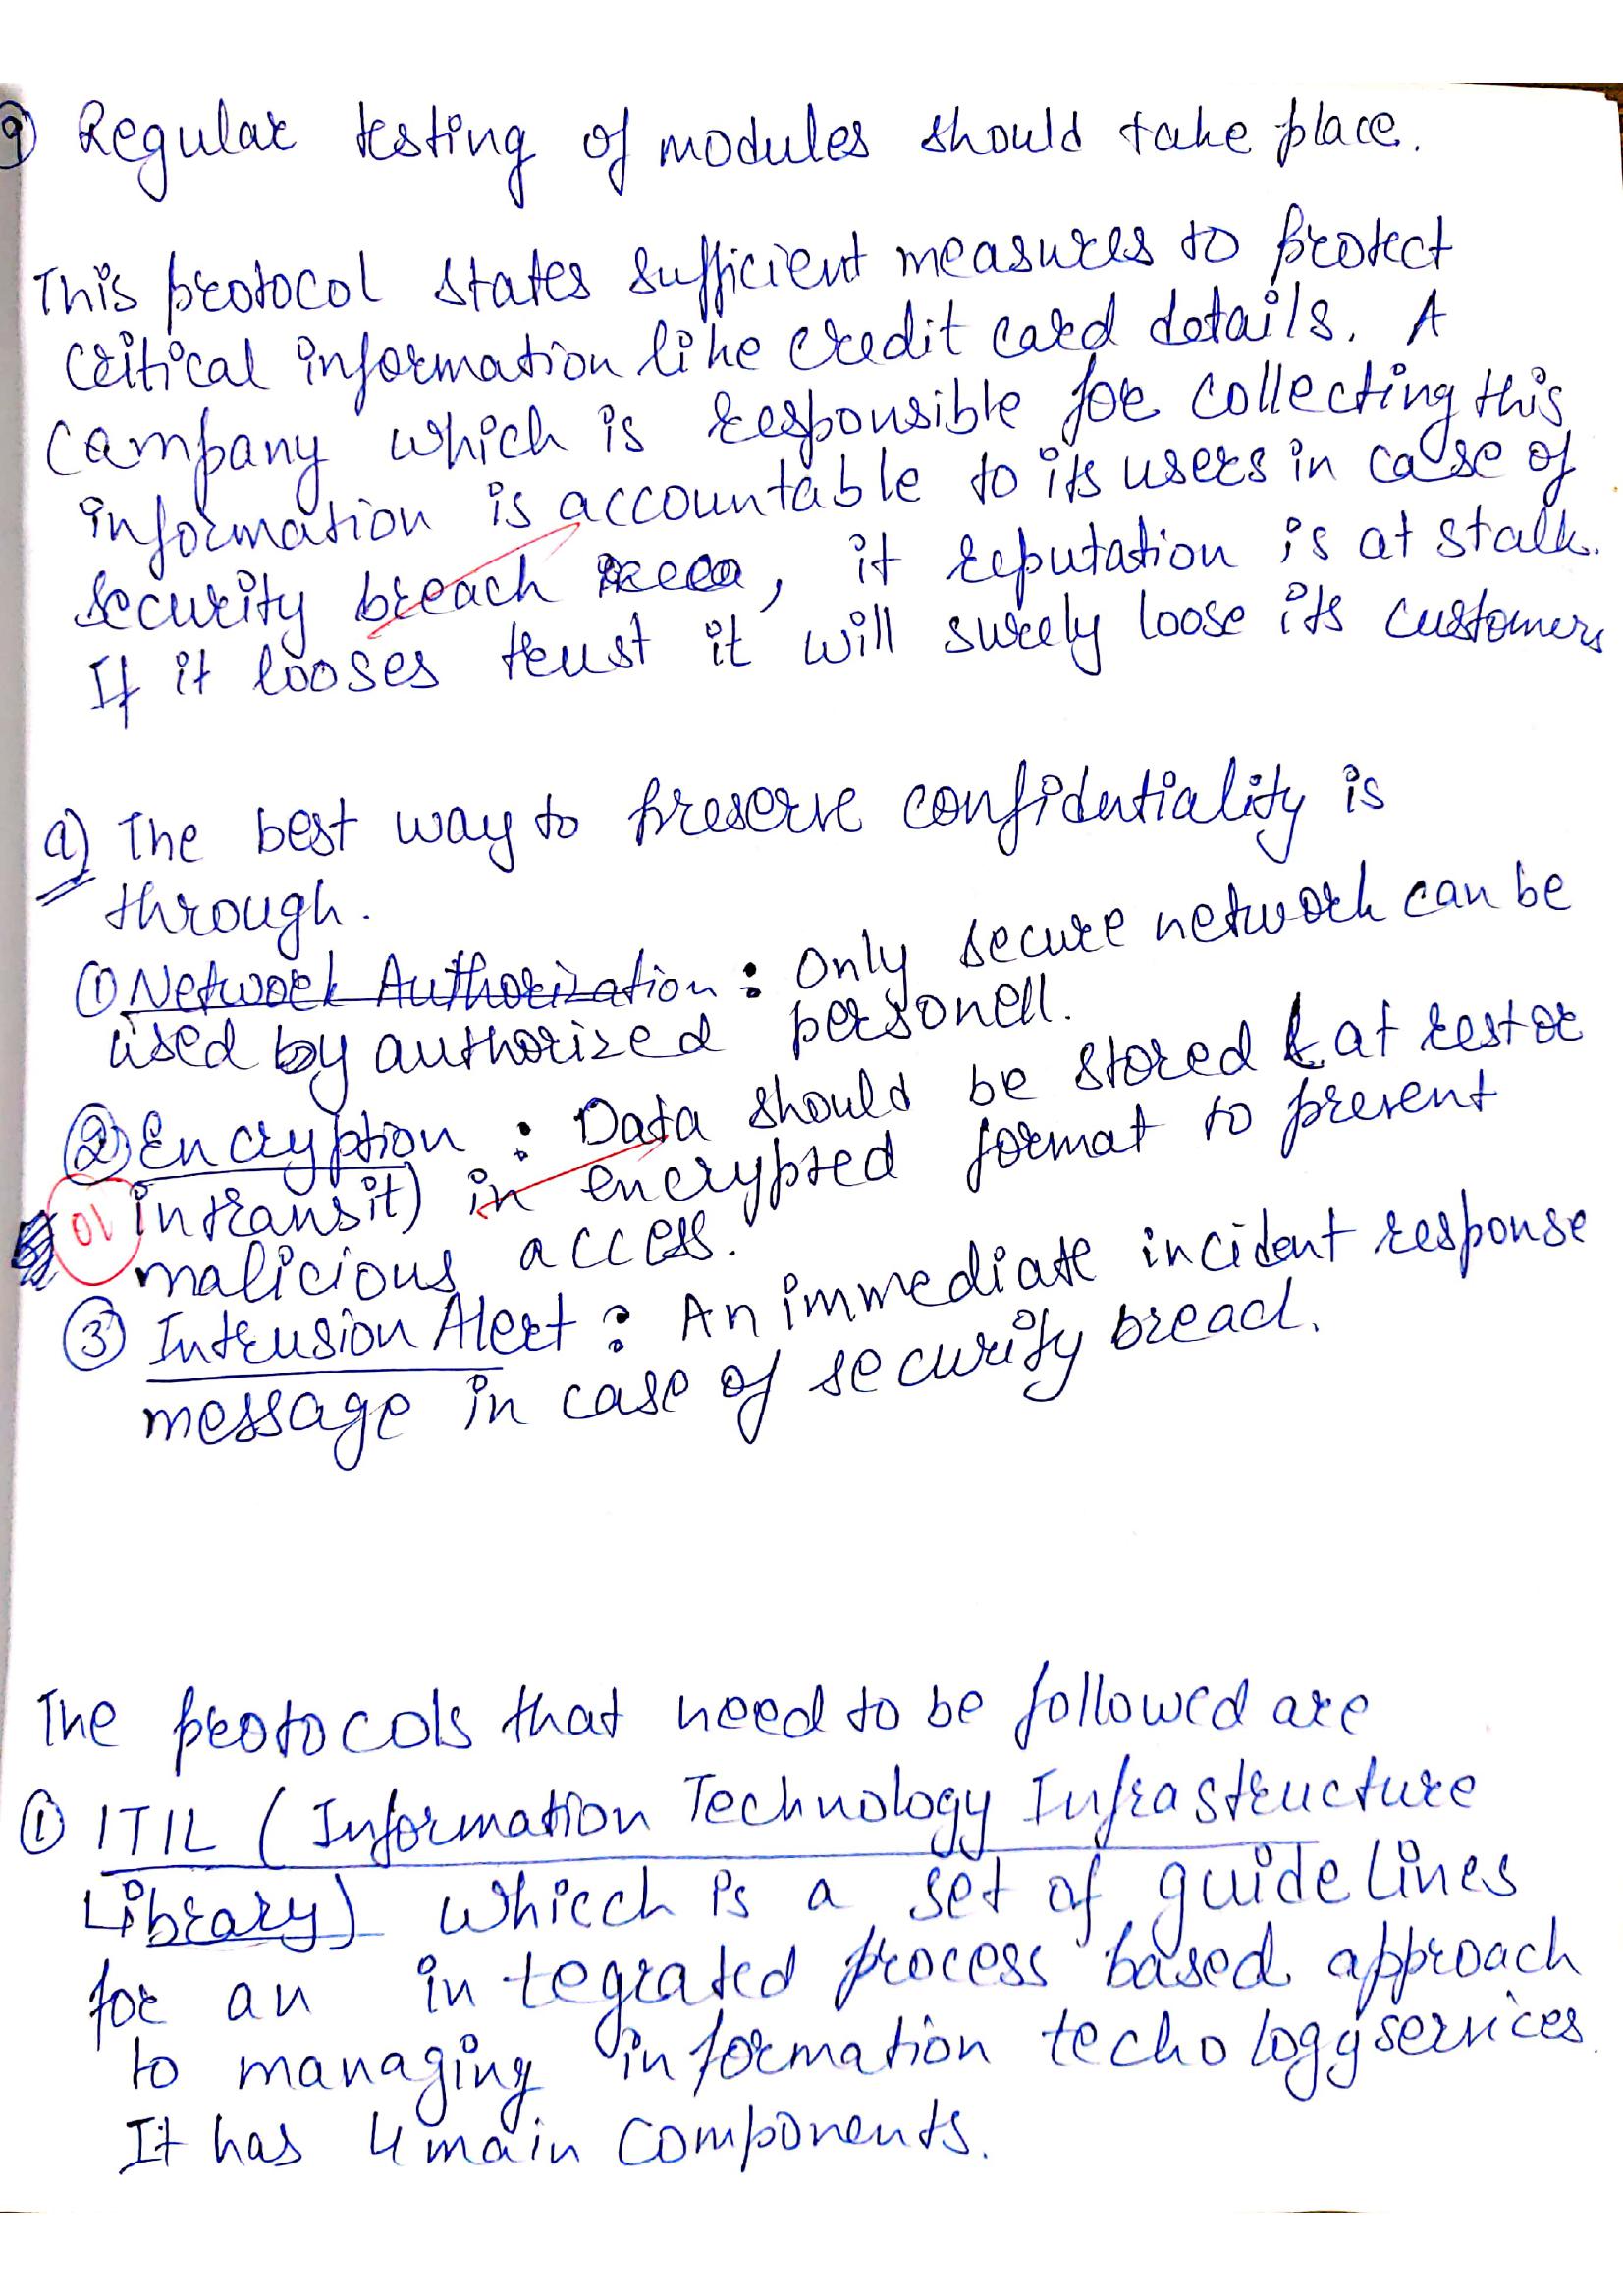 9) Regular testing of modules should take place.
This protocol states sufficient measures to protect
critical information like credit card details. A
company which is responsible for collecting this
information is accountable to its users in case of
security breach, it reputation is at stalk.
If it looses trust it will surely loose its customers
a) The best way to preserve confidentiality is
through.
① Network Authorization : Only secure network can be
used by authorized personell.
② Encryption : Data should be stored (at rest or
in transit) in encrypted format to prevent
01
malicious access.
③ Intrusion Alert : An immediate incident response
message in case of security breach.
The protocols that need to be followed are
① ITIL (Information Technology Infrastructure
Library) whicch is a set of guidelines
for an integrated process based approach
to managing information techology services.
It has 4 main components.